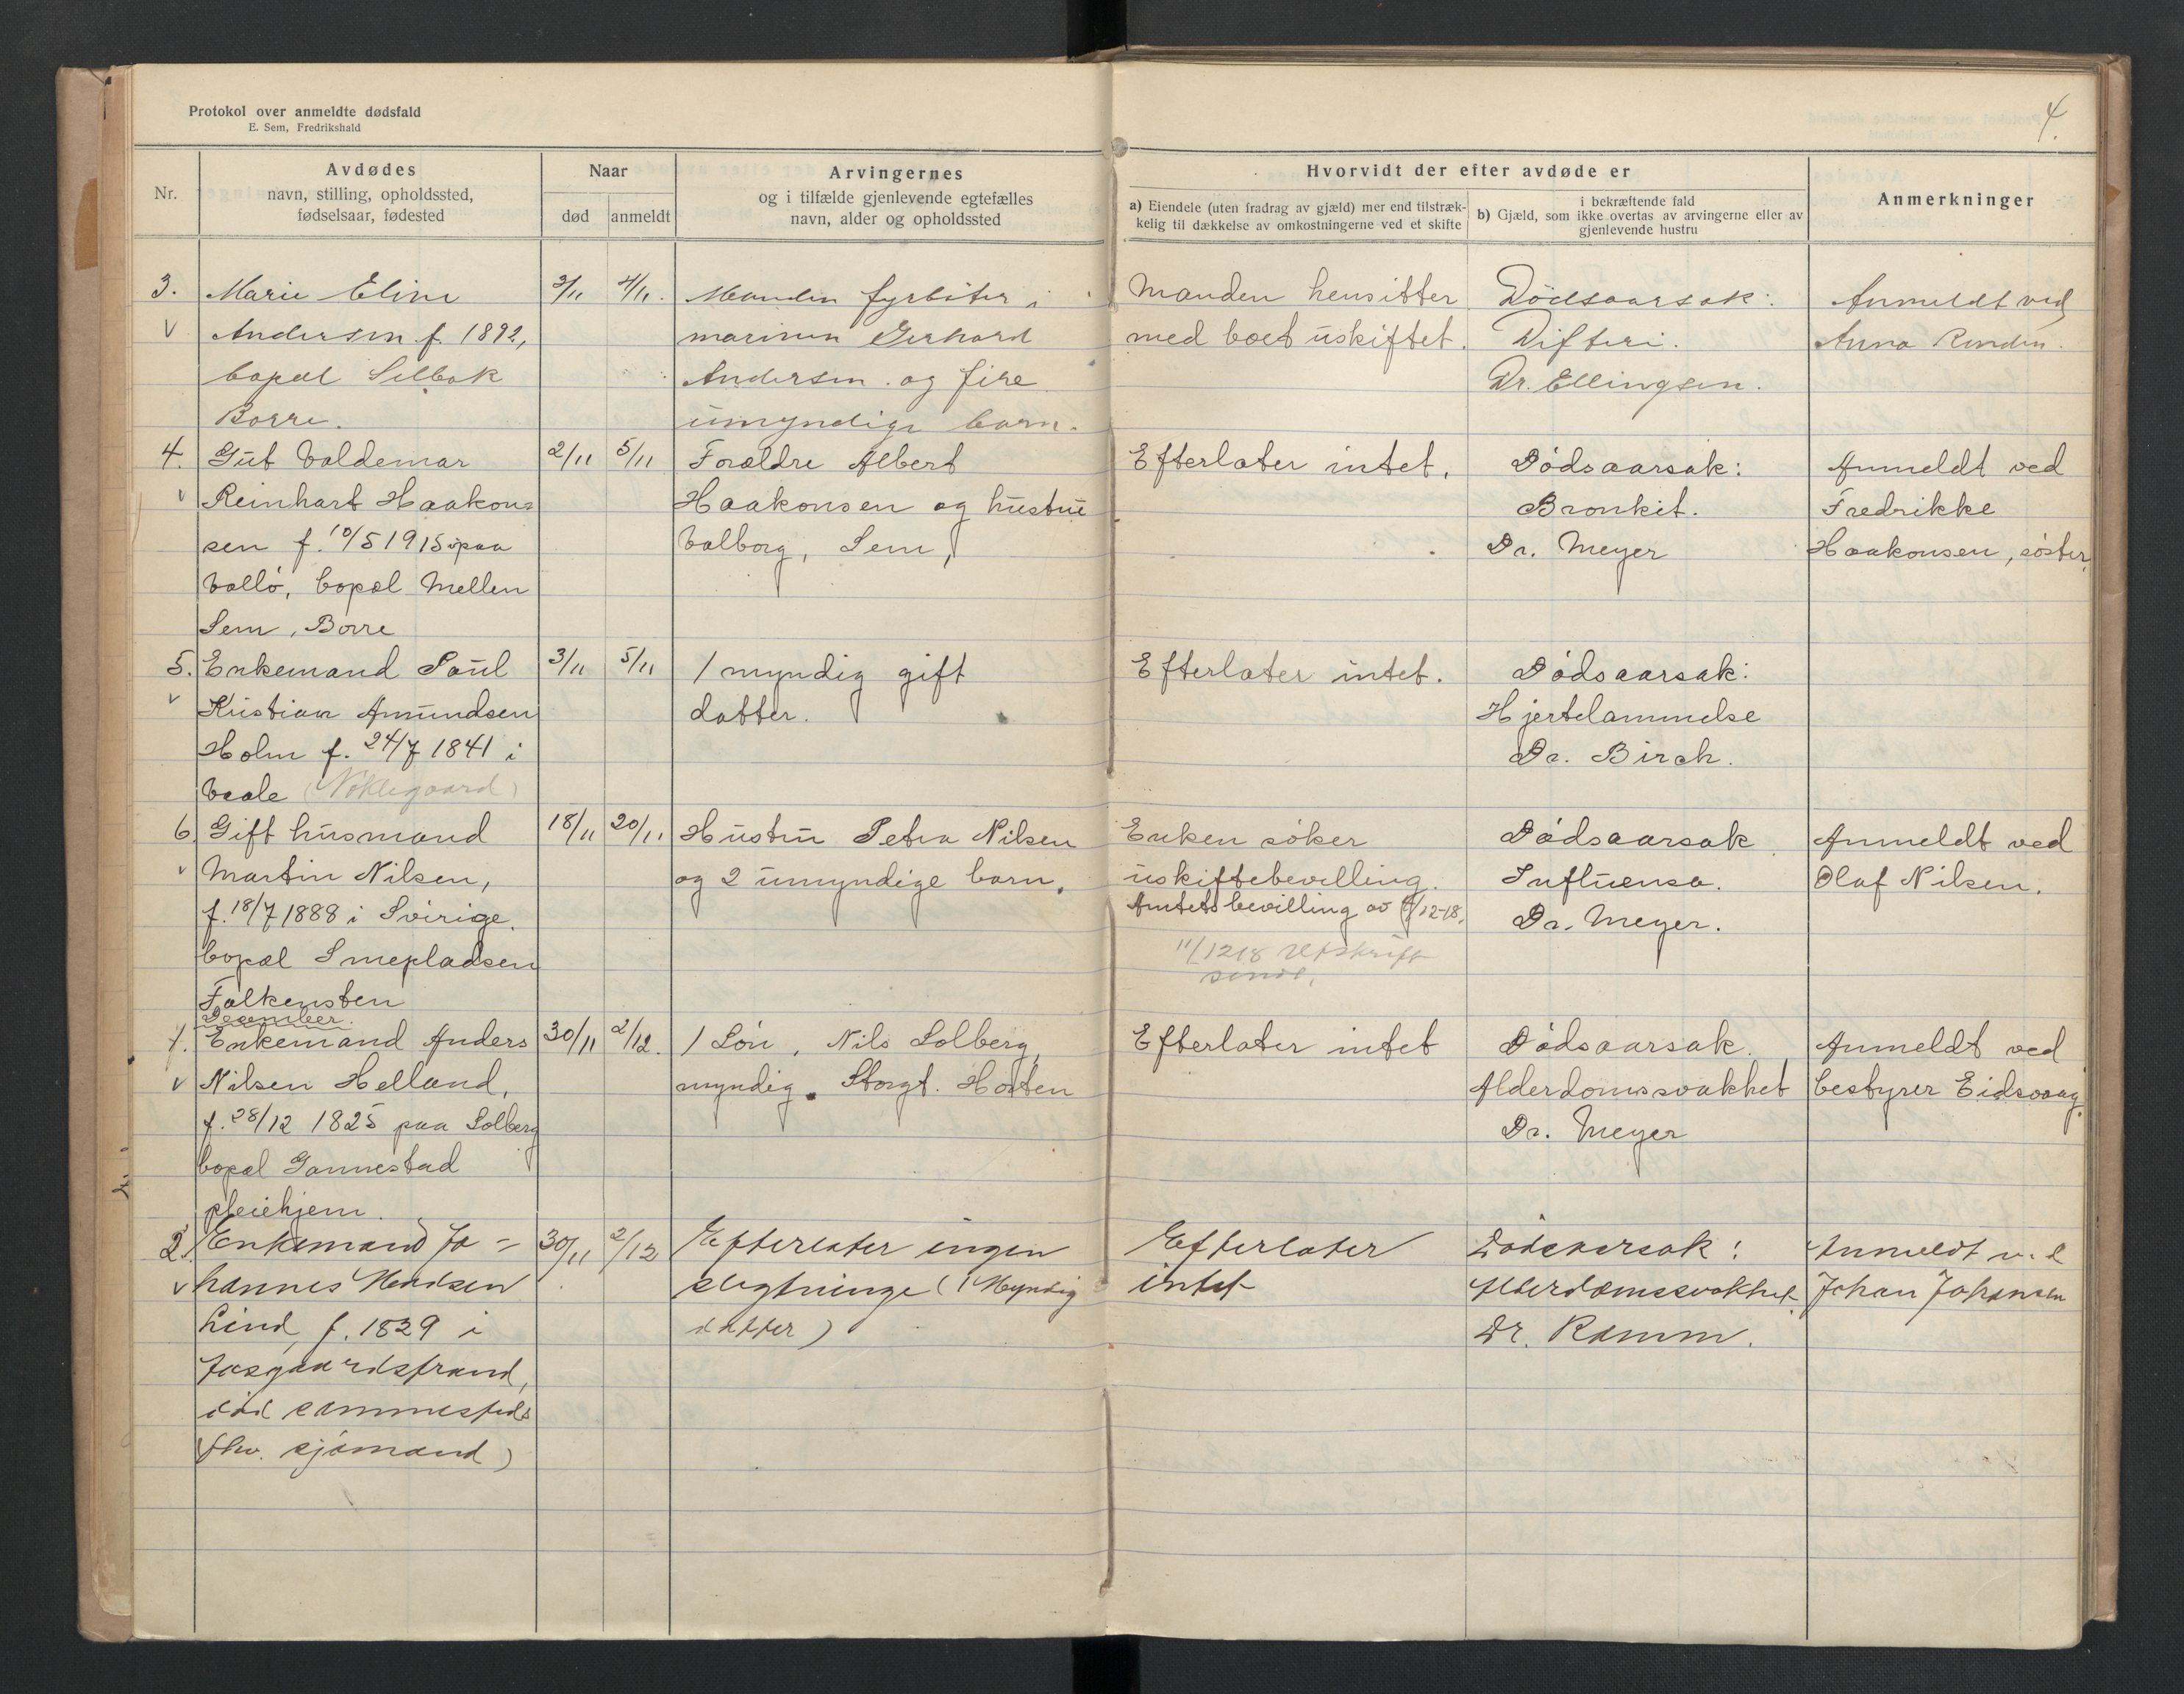 Protokol over anmeldte dødsfald
E. Sem, Fredrikshald
4.
Nr.
Avdødes
navn, stilling, opholdssted,
fødselsaar, fødested
Naar
død
anmeldt
Arvingernes
og i tilfælde gjenlevende egtefælles
navn, alder og opholdssted
Hvorvidt der efter avdøde er
a) Eiendele (uten fradrag av gjæld) mer end tilstræk-
kelig til dækkelse av omkostningerne ved et skifte
i bekræftende fald
b) Gjæld, som ikke overtas av arvingerne eller av
gjenlevende hustru
Anmerkninger
3.
Marie Eline
Andersen f. 1892,
bopæl Selbak
Borre.
3/11
4/11.
Manden fyrbøter i
marinen Gerhard
Andersen og fire
umyndige barn.
Manden hensitter
med boet uskiftet.
Dödsaarsak:
Difteri.
Dr. Ellingsen.
Anmeldt ved
Anna
4.
Gut Valdemar
Reinhart Haakon=
sen f. 10/5 1915 paa
Vallö, bopæl Mellen
Sem, Borre
2/11
5/11
Foræeldre Albert
Haakonsen og hustru
Valborg, Sem,
Efterlater intet.
Dödsaarsak:
Bronkit.
Dr. Meyer
Anmeldt ved
Fredrikke
Haakonsen, söster.
5.
Enkemand Paul
Kristian Amundsen
Holm f. 24/7 1841 i
Vaale (Nöklegaard)
3/11
5/11
1 myndig gift
datter.
Efterlater intet.
Dödsaarsak:
Hjertelammelse
Dr. Birch.
6.
Gift husmand
Martin Nilsen,
f. 18/7 1888 i Sverige.
bopæl Smepladsen
Falkensten
18/11
20/11
Hustru Petra Nilsen
og 2 umyndige barn.
Enken söker
uskiftebevilling.
Amtets bevilling av 9/12-18.
11/12 18 Utskrift
sendt.
Dödsaarsak
Influensa.
Dr. Meyer.
Anmeldt ved
Olaf Nilsen.
Desember.
1.
Enkemand Anders
Nilsen Helland,
f. 28/12 1825 paa Solberg
bopæl Gannestad
pleiehjem.
30/11
2/12.
1 Sön, Nils Solberg,
myndig. Storgt. Horten
Efterlater intet
Dödsaarsak.
Alderdomssvakhet
Dr. Meyer
Anmeldt ved
bestyrer Eidsvaag.
2.
Enkemand Jo=
hannes
Lind, f. 1829 i
Aasgaardstrand,
död sammesteds
(fhv. sjömand)
30/11
2/12
Efterlater ingen
slegtninge (1 Myndig
datter)
Efterlater
intet
Dödsaarsak:
Alderdomssvakhet
Dr. Ramm.
Anmeldt ved
Johan Johansen